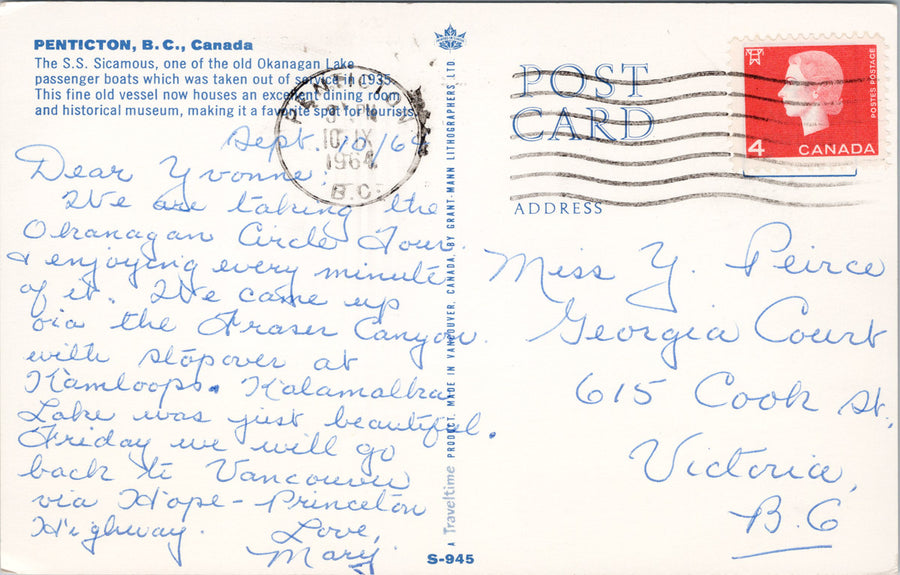 PENTICTON, B.C., Canada
The S.S. Sicamous, one of the old Okanagan Lake
passenger boats which was taken out of service in 1935.
This fine old vessel now houses an excellent dining room
and historical museum, making it a favorite spot for tourists.
Sept. 10/64
Dear Yvonne:
We are taking the
Okanagan Circle Tour
& enjoying every minute
of it. We came up
via the Fraser Canyon
with stopover at
Kamloops. Kalamalka
Lake was just beautiful.
Friday we will go
back to Vancouver
via Hope-Princeton
Highway.
Love,
Mary.
A Traveltime PRODUCT. MADE IN VANCOUVER, CANADA, BY GRANT-MANN LITHOGRAPHERS LTD
S-945
PENTICTON
PM
10 IX
1964
B.C.
POST
CARD
ADDRESS
POSTES POSTAGE
4 CANADA
Miss Y. Peirce
Georgia Court
615 Cook St.,
Victoria,
B.C